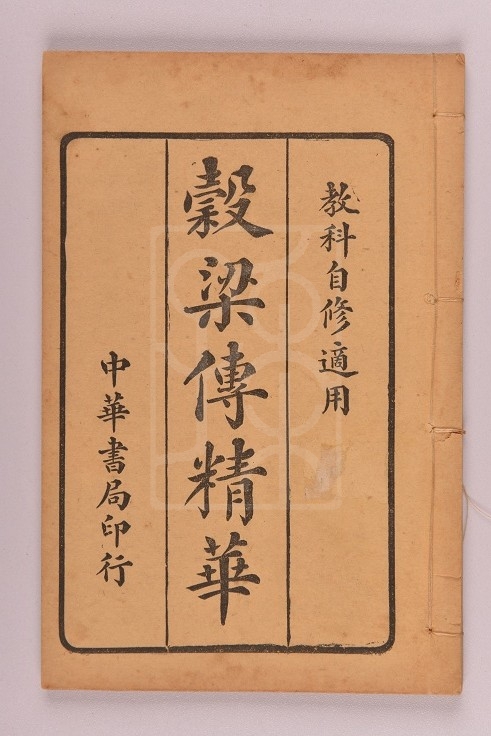 教科自修適用
穀梁傳精華
中華書局印行